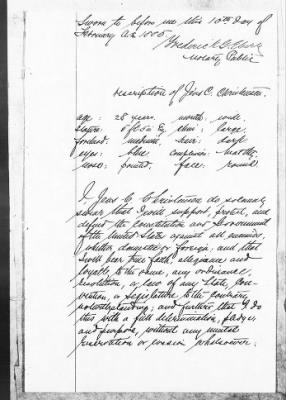 Sworn to before me this 10th day of
February A.D. 1885.
Frederick
Notary Public
Description of Jens C. Christensen.
age: 28 years. mouth: wide.
stature: 5 ft 5 in Eng chin: large.
forehead: medium, hair: dark
eyes: blue complexion: healthy
nose: pointed. face: round
I, Jens C. Christensen do solemnly
swear that I will support, protect, and
defend the constitution and Government
of the United States against all enemies,
whether domestic or foreign, and that
I will bear true faith, allegiance and
loyalty to the same, any ordinance,
resolution, or law of any State, Con-
vention, or Legislature to the contrary
notwithstanding; and further that I do
this with a full determination, pledge
and purpose, without any mental
reservation or evasion whatsoever.